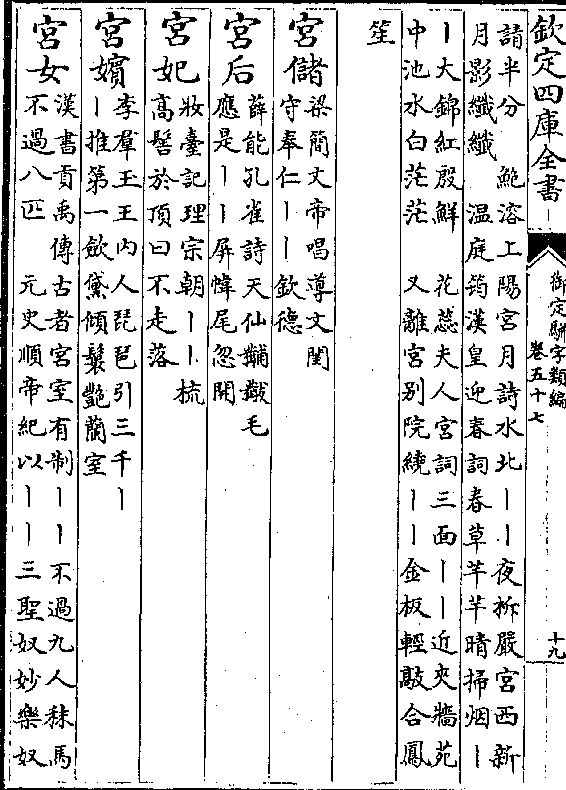 欽定四庫全書
御定駢字類編
卷五十七
十九
請半分 鮑溶上陽宮月詩水北丨丨夜柝嚴宮西新
月影纖纖 溫庭筠漢皇迎春詞春草芊芊晴掃烟丨
丨大錦紅殷鮮 花蕊夫人宮詞三面丨丨近夾牆苑
中池水白茫茫 又離宮别院繞丨丨金板輕敲合鳳
笙
宮儲
梁簡文帝唱導文閨
守奉仁丨丨欽德
宮后
薛能孔雀詩天仙黼黻毛
應是丨丨屏幃尾忽開
宮妃
妝臺記理宗朝丨丨梳
高髻於頂曰不走落
宮嬪
李羣玉王內人琵琶引三千丨
丨推第一斂黛傾鬟艷蘭室
宮女
漢書貢禹傳古者宮室有制丨丨不過九人秣馬
不過八匹 元史順帝紀以丨丨三聖奴妙樂奴